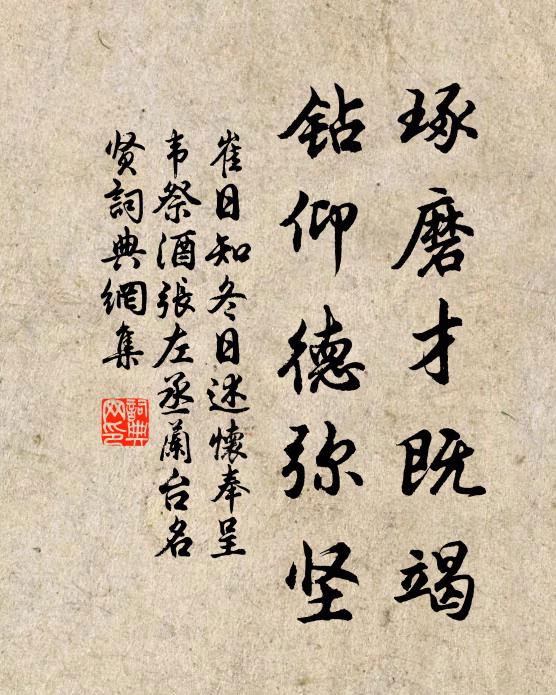 琢磨才既竭
钻仰德弥坚
崔日知冬日述懷奉呈
韦祭酒張左丞蘭台名
贤詞典網集
詞典
网印